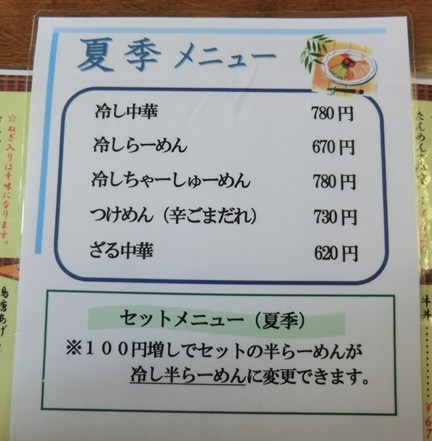 夏季 メニュー
冷し中華 780円
冷しらーめん 670円
冷しちゃーしゅーめん 780円
つけめん（辛ごまだれ） 730円
ざる中華 620円
セットメニュー（夏季）
※１００円増しでセットの半らーめんが
冷し半らーめんに変更できます。
☆ねぎ入りは辛味になります。
牛丼